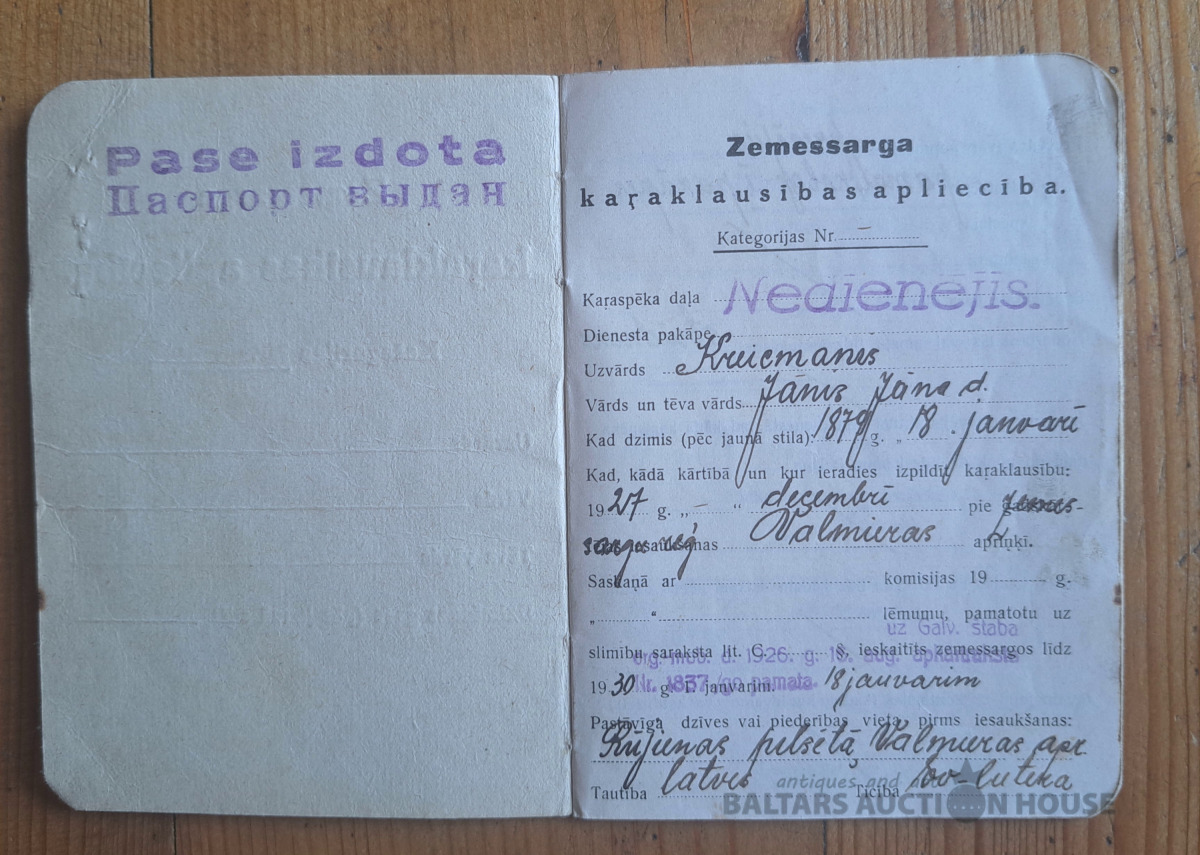 Pase izdota
Паспорт выдан
Zemessarga
kaŗaklausības apliecība.
Kategorijas Nr. –
Kaŗaspēka daļa Nedienējis.
Dienesta pakāpe
Uzvārds Kreicmanis
Vārds un tēva vārds Jānis Jāņa d.
Kad dzimis (pēc jaunā stila): 1879 g. „ 18. janvarī
Kad, kādā kārtībā un kur ieradies izpildīt kaŗaklausību:
1927 g. „ – “ decembrī pie zemes-
sarga reģ Valmieras apriņķī.
Saskaņā ar komisijas 19 g.
„ “ lēmumu, pamatotu uz
uz Galv. štaba
slimību saraksta lit. C. §, ieskaitīts zemessargos līdz
org. mob. d. 1926. g. 18. aug. apkārtraksta
1930 g. 1. janvarim. 18 janvarim
Nr. 1837 /go pamata.
Pastāvīgā dzīves vai piederības vieta pirms iesaukšanas:
Rūjienas pilsētā, Valmieras apr.
Tautība latvis Ticība ev-lutera
antiques and
BALTARS AUCTION HOUSE